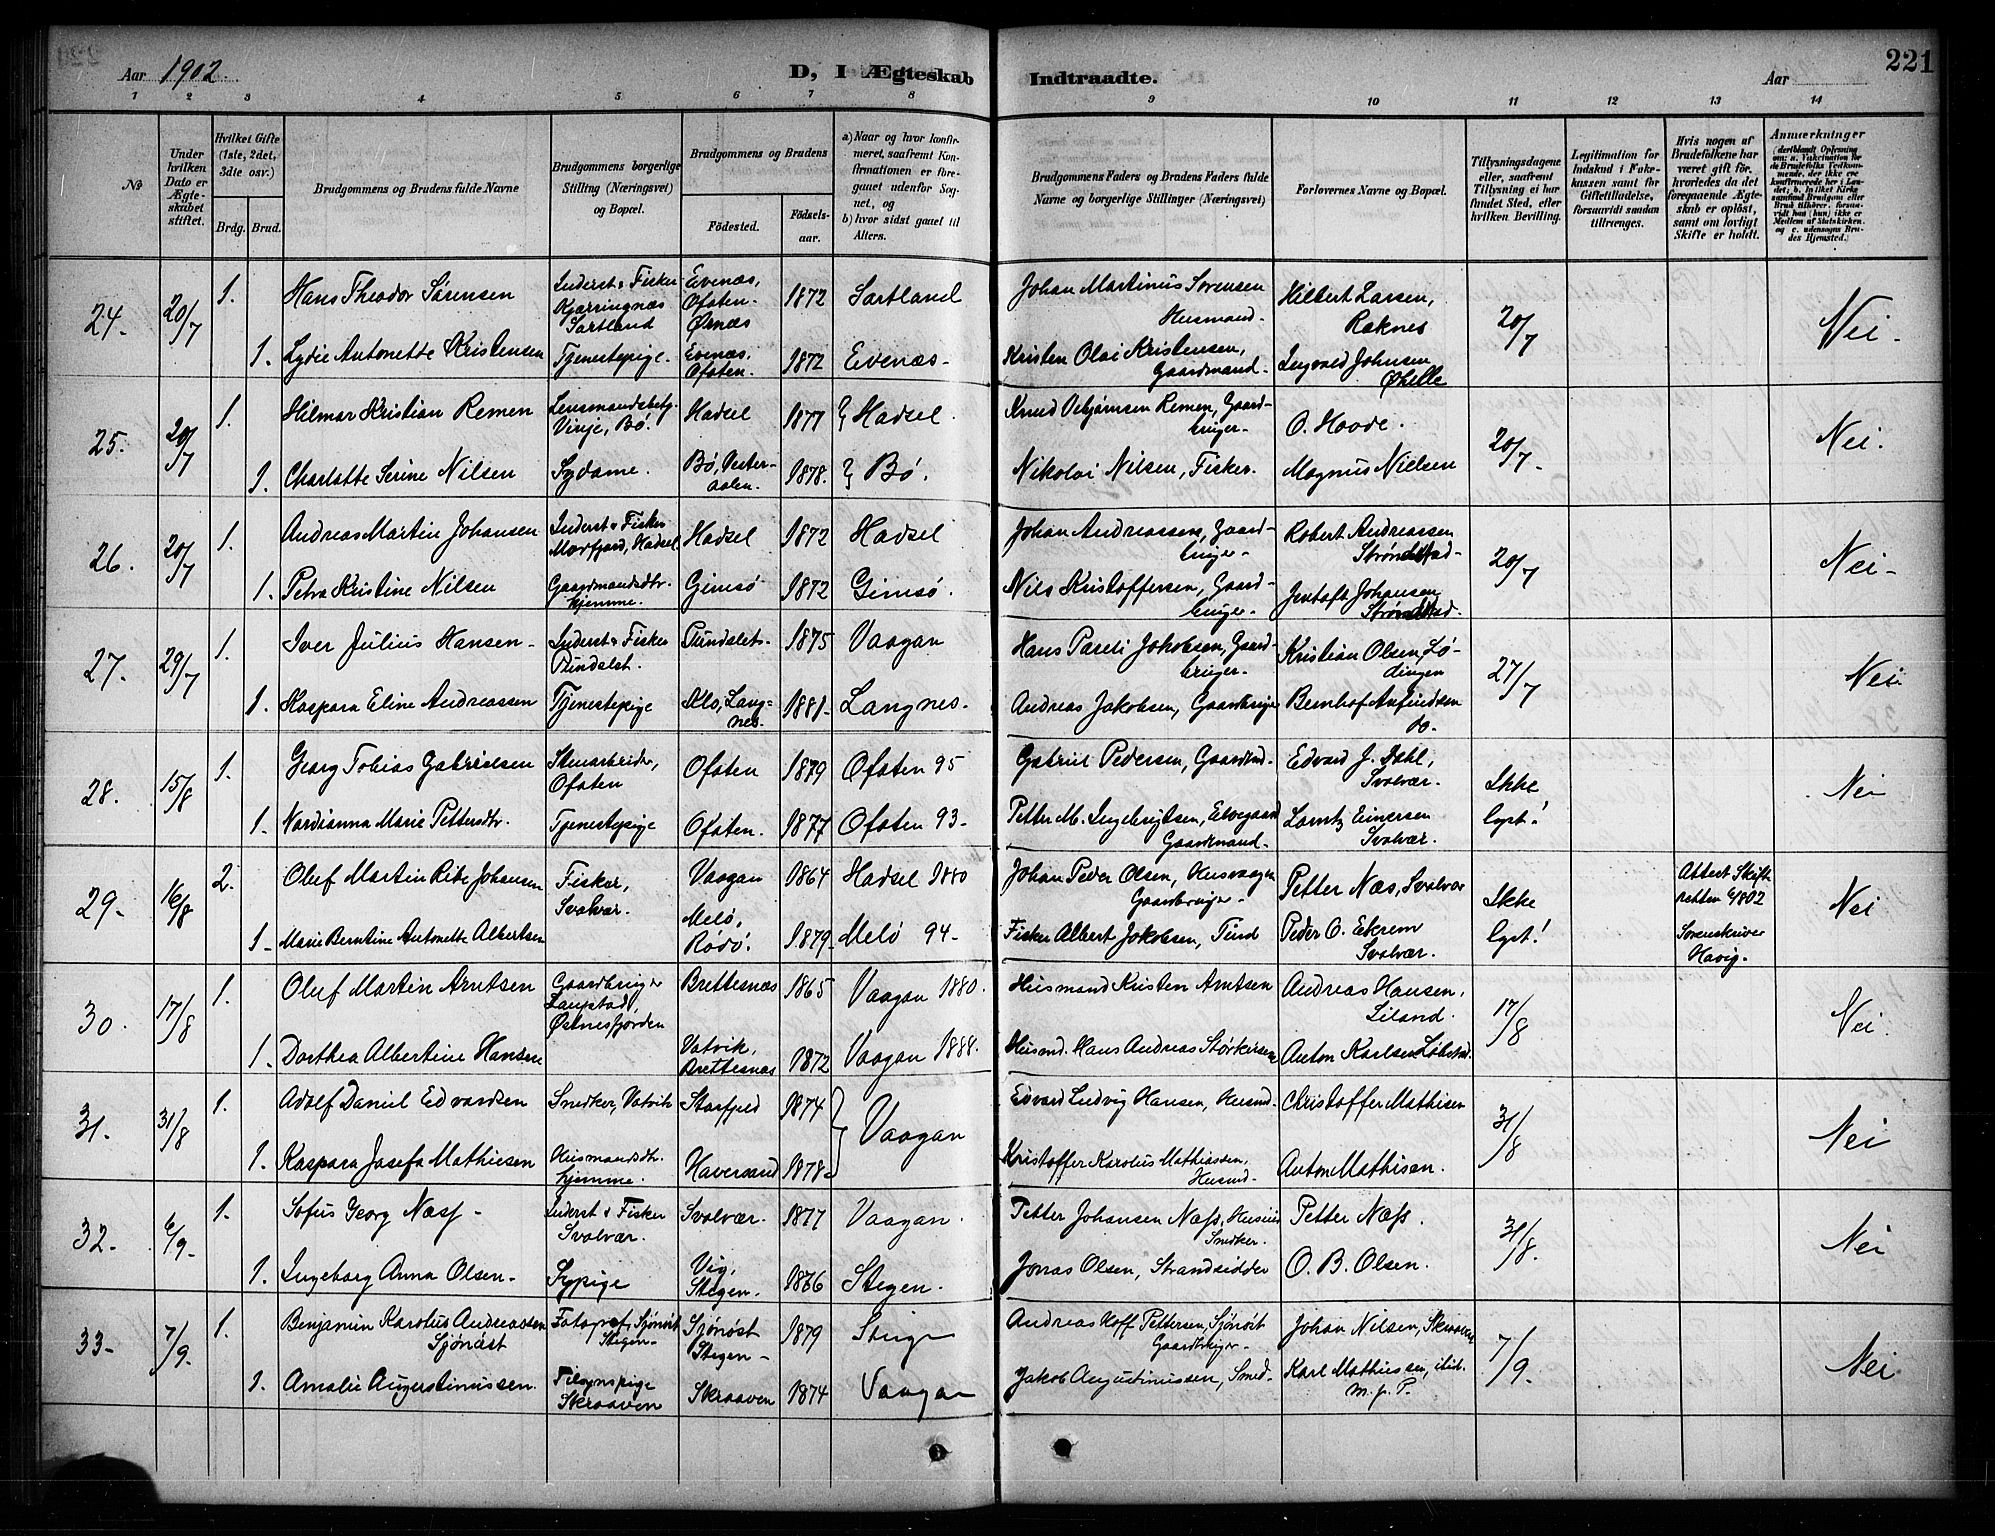 Aar 1902
D, I Ægteskab Indtraadte.
Aar
221
1 2 3 4 5 6 7 8 9 10 11 12 13 14
№
Under hvilken Dato er Ægteskabet stiftet.
Hvilket Gifte (1ste, 2det, 3die osv.)
Brdg. Brud.
Brudgommens og Brudens fulde Navne
Brudgommens borgerlige Stilling (Næringsvei) og Bopæl.
Brudgommens og Brudens
Fødested. Fødselsaar.
a) Naar og hvor konfirmeret, saafremt Konfirmationen er foregaaet udenfor Sognet, og
b) hvor sidst gaaet til Alters.
Brudgommens Faders og Brudens Faders fulde Navne og borgerlige Stillinger (Næringsvei)
Forlovernes Navne og Bopæl.
Tillysningsdagene eller, saafremt Tillysning ei har fundet Sted, efter hvilken Bevilling.
Legitimation for Indskud i Enkekassen samt for Giftetilladelse, forsaavidt saadan tiltrænges.
Hvis nogen af Brudefolkene har været gift før, hvorledes da det foregaaende Ægteskab er opløst, samt om lovligt Skifte er holdt.
Anmærkninger
24. 20/7 1. Hans Theodor Sørensen Inderst & Fisker Kjerringnæs Sartland Evenæs, Ofoten. Ørnæs 1872 Sartland Johan Martinus Sørensen Husmand. Hilbert Larsen, Raknes 20/7 Nei.
1. Lydie Antonette Kristensen Tjenestepige. Evenæs, Ofoten. 1872 Evenæs. Kristen Olai Kristensen, Gaardmand. Ingvald Johnsen Øhelle
25. 20/7 1. Hilmar Kristian Remen Lensmandsbetj. Vinje, Bø. Hadsel 1877 Hadsel. Knud Gaardbruger. O. Hovde. 20/7. Nei.
1. Charlotte Serine Nilsen Sydame. Bø, Vesteraalen. 1878. Bø. Nikolai Nilsen, Fisker. Magnus Nielsen
26. 20/7 1. Andreas Martin Johansen Inderst & Fisker Morfjord, Hadsel Hadsel 1872 Hadsel Johan Andreassen, Gaardbruger. Robert Andreassen Strøndstad. 20/7 Nei.
1. Petra Kristine Nilsen Gaardmandsdtr. hjemme. Gimsø 1872 Gimsø. Nils Kristoffersen, Gaardbruger. Jentoft Johansen Strøndstad.
27. 29/7 1. Iver Julius Hansen. Inderst & Fisker Pundslet. Pundslet. 1875 Vaagan Hans Pareli Jakobsen, Gaardbruger. Kristian Olsen, Lødingen 27/7 Nei
1. Kaspara Eline Andreassen Tjenestepige Klo, Langnes. 1881. Langnes. Andreas Jakobsen, Gaardbruger Bernhof Anfindsen do.
28. 15/8 1. Georg Tobias Gabrielsen Stenarbeider, Ofoten Ofoten 1879 Ofoten 95 Gabriel Pedersen, Gaardmd. Edvard J. Dahl, Svolvær. Ikke lyst! Nei
1. Nordianna Marie Pettersdtr. Tjenestepige Ofoten. 1877 Ofoten 93. Petter M. Ingebrigtsen, Elvegaard Gaardmand. Lorntz Einersen Svolvær.
29. 16/8 2. Oluf Martin Ribe Johansen Fisker, Svolvær. Vaagan 1864 Hadsel 1880 Johan Peder Olsen, Husvaagen Gaardbruger. Petter Næs, Svolvær Ikke lyst! Attest Skifteretten Sorenskriver Havig. Nei
1. Marie Berntine Antonette Albertsen Melø, Rødø. 1879. Melø 94. Fisker Albert Jakobsen, Tind Peder O. Ekrem Svolvær.
30. 17/8 1. Oluf Martin Arntsen Gaardbruger Laupstad, Østnesfjorden Brettesnæs 1865 Vaagan 1880. Husmand Kristen Arntsen Andreas Hansen, Liland. 17/8 Nei.
1. Dorthea Albertine Hansen Vatvik, Brettesnæs 1872 Vaagan 1888. Husmd. Hans Andreas Størkersen Anton Karlsen
31. 31/8 1. Adolf Daniel Edvardsen Snedker, Vatvik Storfjeld 1874 Vaagan Edvard Ludvig Hansen, Husmd. Christoffer Mathisen 31/8 Nei
1. Kaspara Josefa Mathiesen Husmandsdtr. hjemme. Haversand 1878. Kristoffer Karolus Mathiassen, Husmd. Anton Mathisen.
32. 6/9. 1. Sofus Georg Næss. Inderst & Fisker Svolvær. Svolvær. 1877 Vaagan. Petter Johansen Næss, Snedker. Petter Næss. 31/8. Nei
1. Ingeborg Anna Olsen. Sypige Vig, Stegen. 1876 Stegen. Jonas Olsen, Strandsidder O. B. Olsen.
33. 7/9. 1. Benjamin Karolius Andreassen Sjønøst Fotograf, Sjønøst Stegen. Sjønøst Stegen. 1879 Andreas Hoff Pettersen, Sjønøst Gaardbruger. Johan Nilsen, Skraaven 7/9. Nei
1. Amalie Augustinussen. Skraaven Skraaven 1874 Vaagan Jakob Augustinussen, Smed. Karl Mathiassen, ibid. m. p. P.